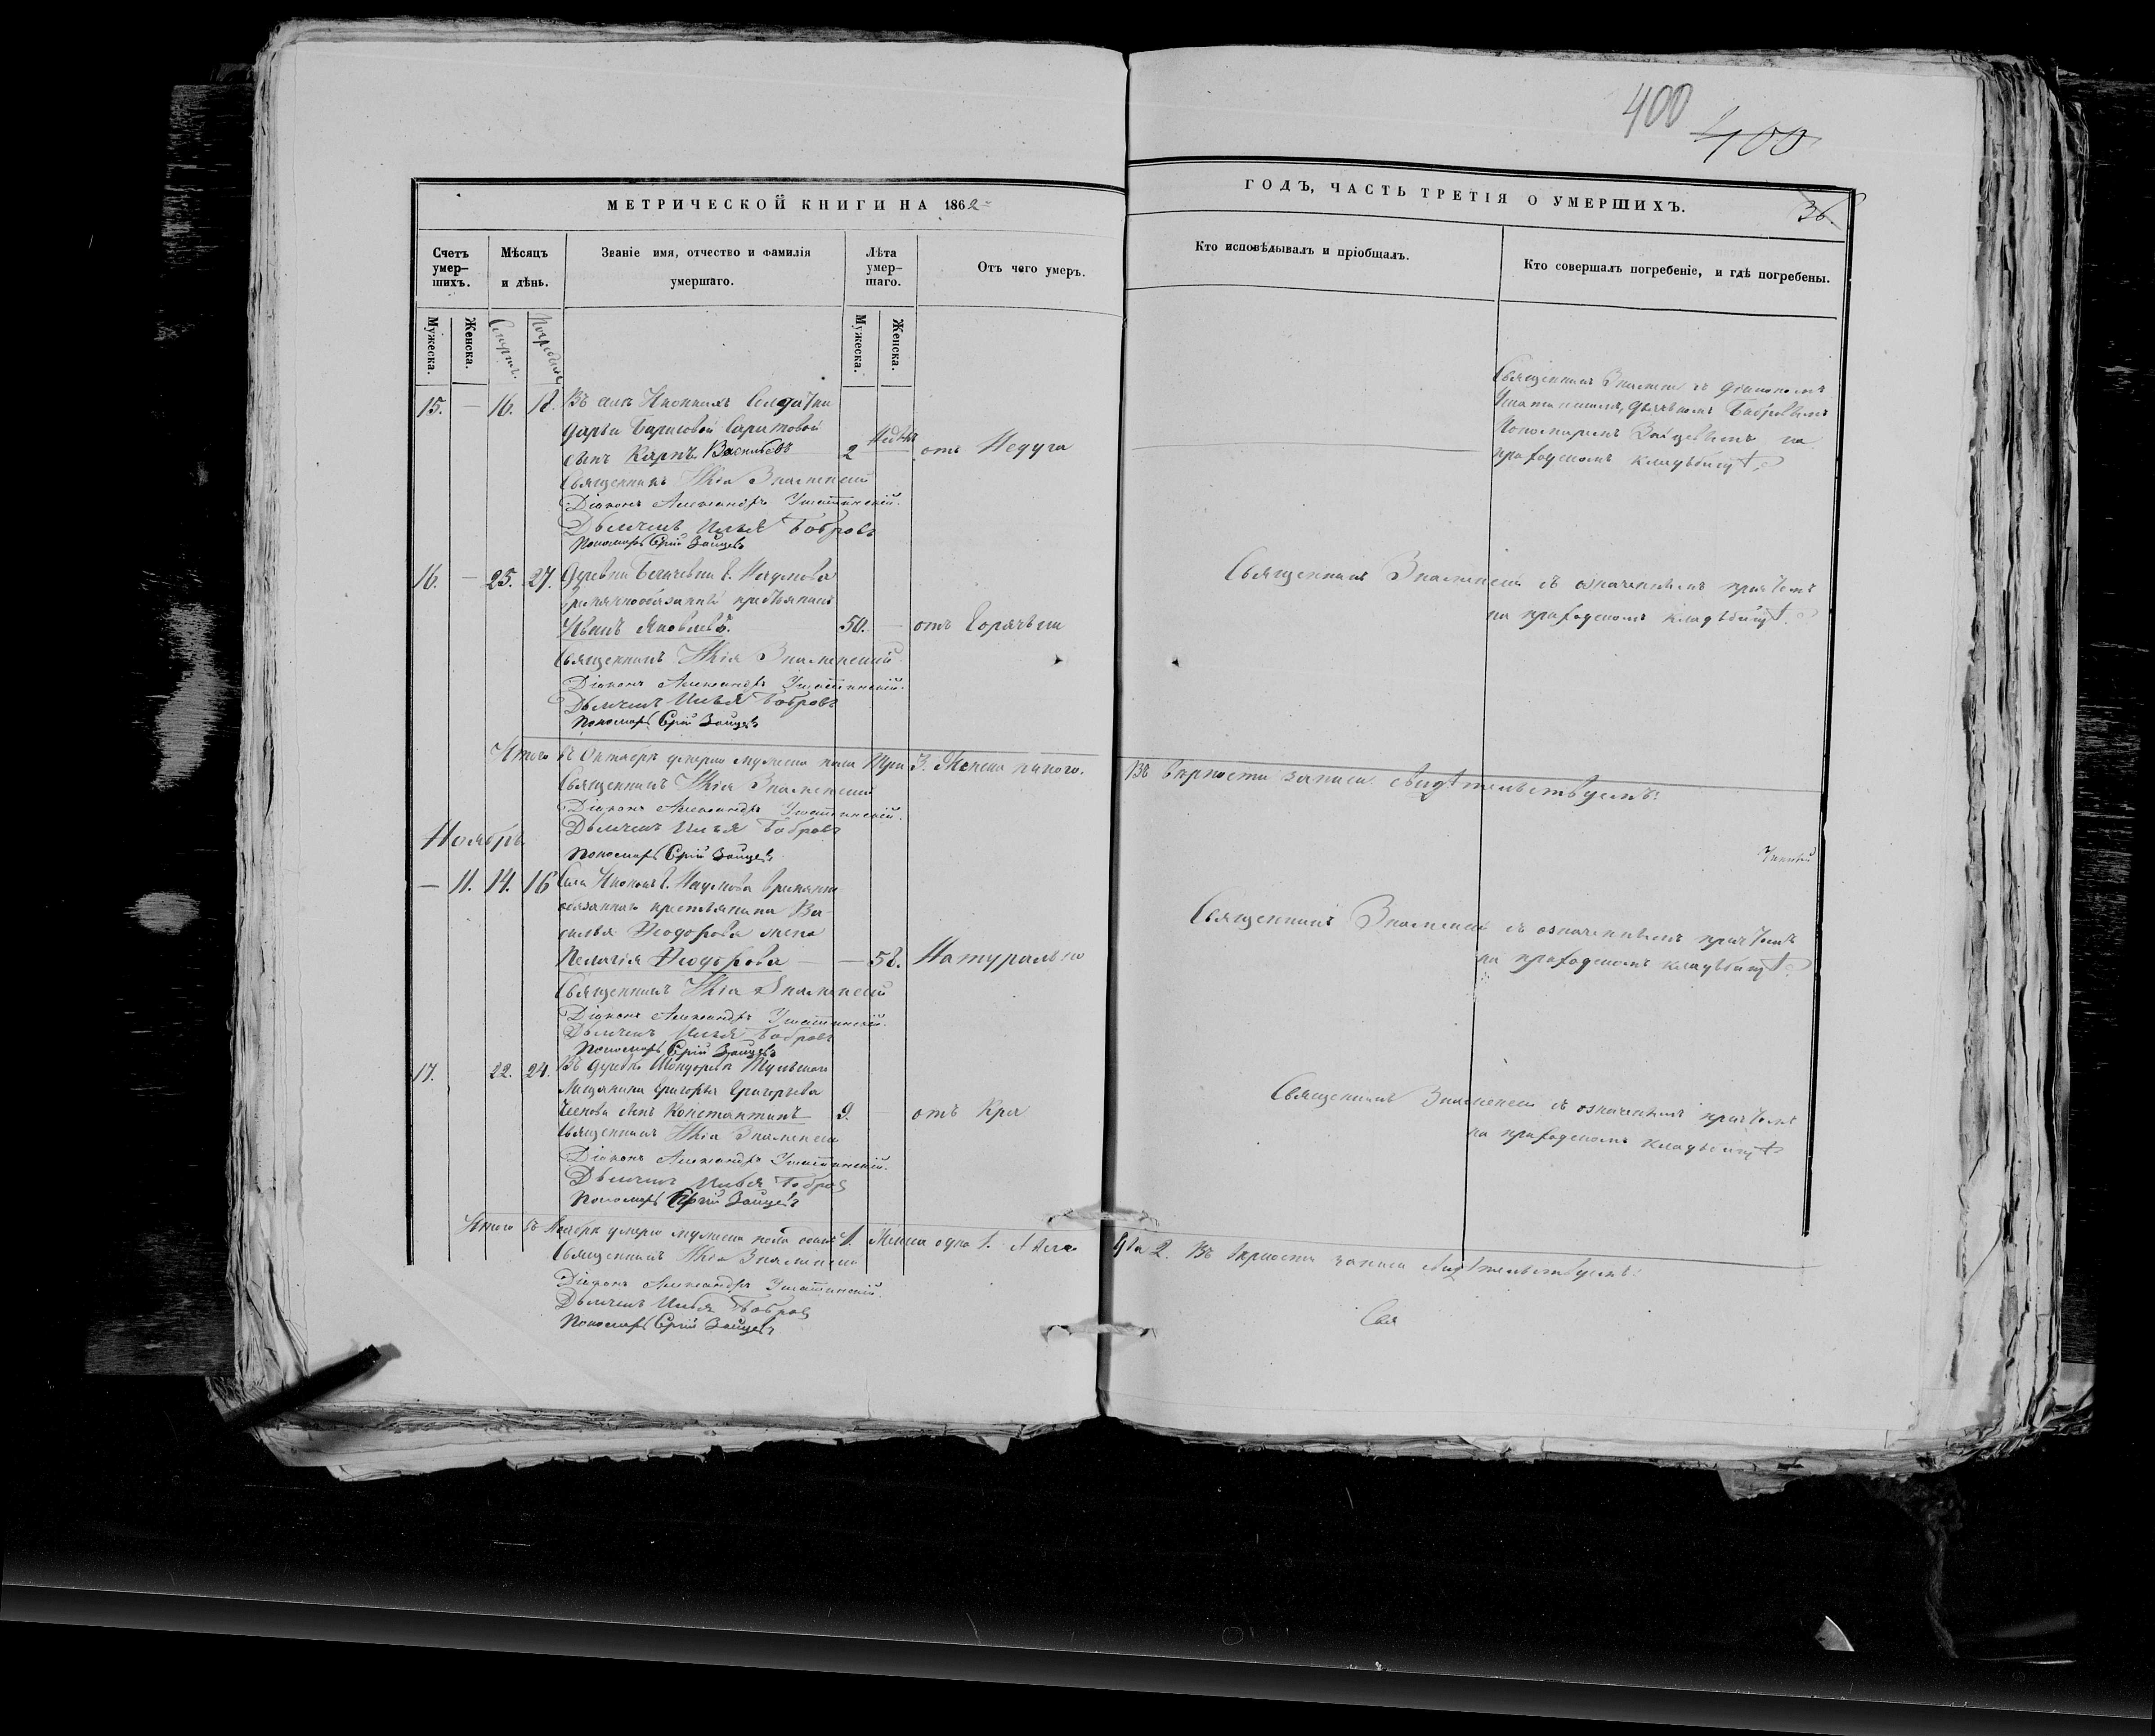 400
400
МЕТРИЧЕСКОЙ КНИГИ НА 1862
ГОДЪ, ЧАСТЬ ТРЕТІЯ О УМЕРШИХЪ.
36.
Счетъ умер-
шихъ.
Мѣсяцъ
и день.
Званіе имя, отчество и фамилія
умершаго.
Лѣта
умер-
шаго.
Отъ чего умеръ.
Кто исповѣдывалъ и пріобщалъ.
Кто совершалъ погребеніе, и гдѣ погребены.
Мужеска.
Женска.
Мужеска.
Женска.
15. — 16. 18. Въ селѣ Солдатки
Дарьи Борисовой
сынъ Карпъ Васильевъ 2 отъ Недуга
Священникъ Знаменскій
Діаконъ Александръ
Дьячекъ Илья Бобровъ
Пономарь Зайцевъ
Священникъ Знаменскій съ діакономъ
дьячкомъ Бобровымъ
Пономаремъ Зайцевымъ на
приходскомъ кладбищѣ
16. — 25. 27. Деревни г. Наумова
временнообязанный крестьянинъ
Иванъ Яковлевъ. 50. — отъ Горячки
Священникъ Знаменскій
Діаконъ Александръ
Дьячекъ Илья Бобровъ
Пономарь Зайцевъ
Священникъ Знаменскій съ означеннымъ причтомъ
на приходскомъ кладбищѣ.
Итого въ Октябрѣ умерло мужеска пола три 3. Женска никого. Въ вѣрности записи свидѣтельствуемъ:
Священникъ Знаменскій
Діаконъ Александръ
Дьячекъ Илья Бобровъ
Пономарь Зайцевъ
Ноябрь
— 11. 14. 16 Села г. Наумова временно-
обязаннаго крестьянина Ва-
силья Ѳеодорова жена
Пелагія Ѳеодорова — — 58. Натурально
Священникъ Знаменскій
Діаконъ Александръ
Дьячекъ Илья Бобровъ
Пономарь Зайцевъ
Священникъ Знаменскій съ означеннымъ причтомъ
на приходскомъ кладбищѣ.
17. 22. 24. Въ деревнѣ Тульскаго
Мѣщанина Григорья Григорьева
сынъ Константинъ 9. — отъ Кря
Священникъ Знаменскій
Діаконъ Александръ
Дьячекъ Илья Бобровъ
Пономарь Зайцевъ
Священникъ Знаменскій съ означеннымъ причтомъ
на приходскомъ кладбищѣ
Итого въ Ноябрѣ умерло мужеска пола одинъ 1. Женска одна 1. А всего два 2. Въ вѣрности записи свидѣтельствуемъ:
Священникъ Знаменскій
Діаконъ Александръ
Дьячекъ Илья Бобровъ
Пономарь Зайцевъ
Свя